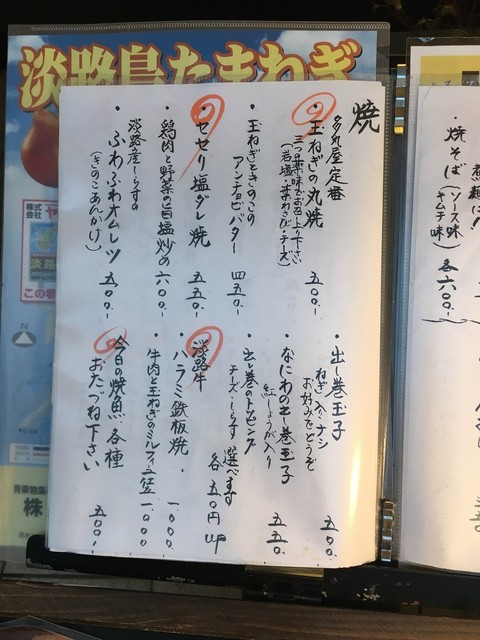 淡路島たまねぎ
焼
多丸屋定番
・玉ねぎの丸焼 五〇〇-
三つの薬味でお召上り下さい
(岩塩・葉わさび・チーズ)
・玉ねぎときのこの
アンチョビバター 四五〇-
・セセリ塩ダレ焼 五五〇-
・鶏肉と野菜の旨塩炒め 六〇〇-
淡路産しらすの
・ふわふわオムレツ 五〇〇-
(きのこあんかけ)
・出し巻玉子 五〇〇-
ねぎ入り・ナシ
お好みでどうぞ
・なにわの出し巻玉子 五五〇-
紅しょうが入り
・出し巻のトッピング
チーズ・しらす 選べます
各五〇円up
淡路牛
・ハラミ鉄板焼 一〇〇〇-
・牛肉と玉ねぎのミルフィーユ笠 一〇〇〇
今日の焼魚 各種
おたづね下さい 五〇〇-
・焼そば(ソース味
キムチ味) 各六〇〇-
株式
会社
淡路
この看
N
株